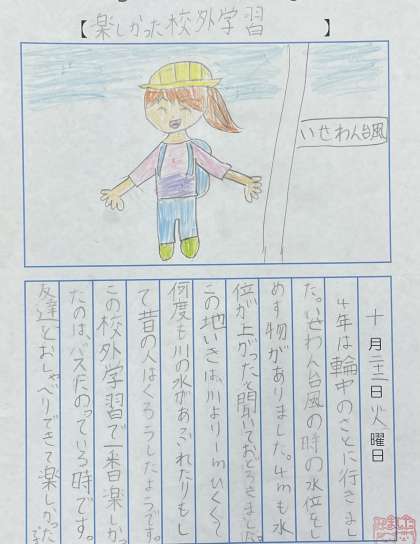 【楽しかった校外学習】
いせわん台風
十月二十二日火曜日
4年は輪中のさとに行きまし
た。いせわん台風の時の水位をし
めす物がありました。4mも水
位が上がったと聞いておどろきました。
この地いきは、川より1mひくくて
何度も川の水があふれたりもし
て昔の人はくろうしたようです。
この校外学習で一番楽しかっ
たのは、バスにのっている時です。
友達とおしゃべりできて楽しかった